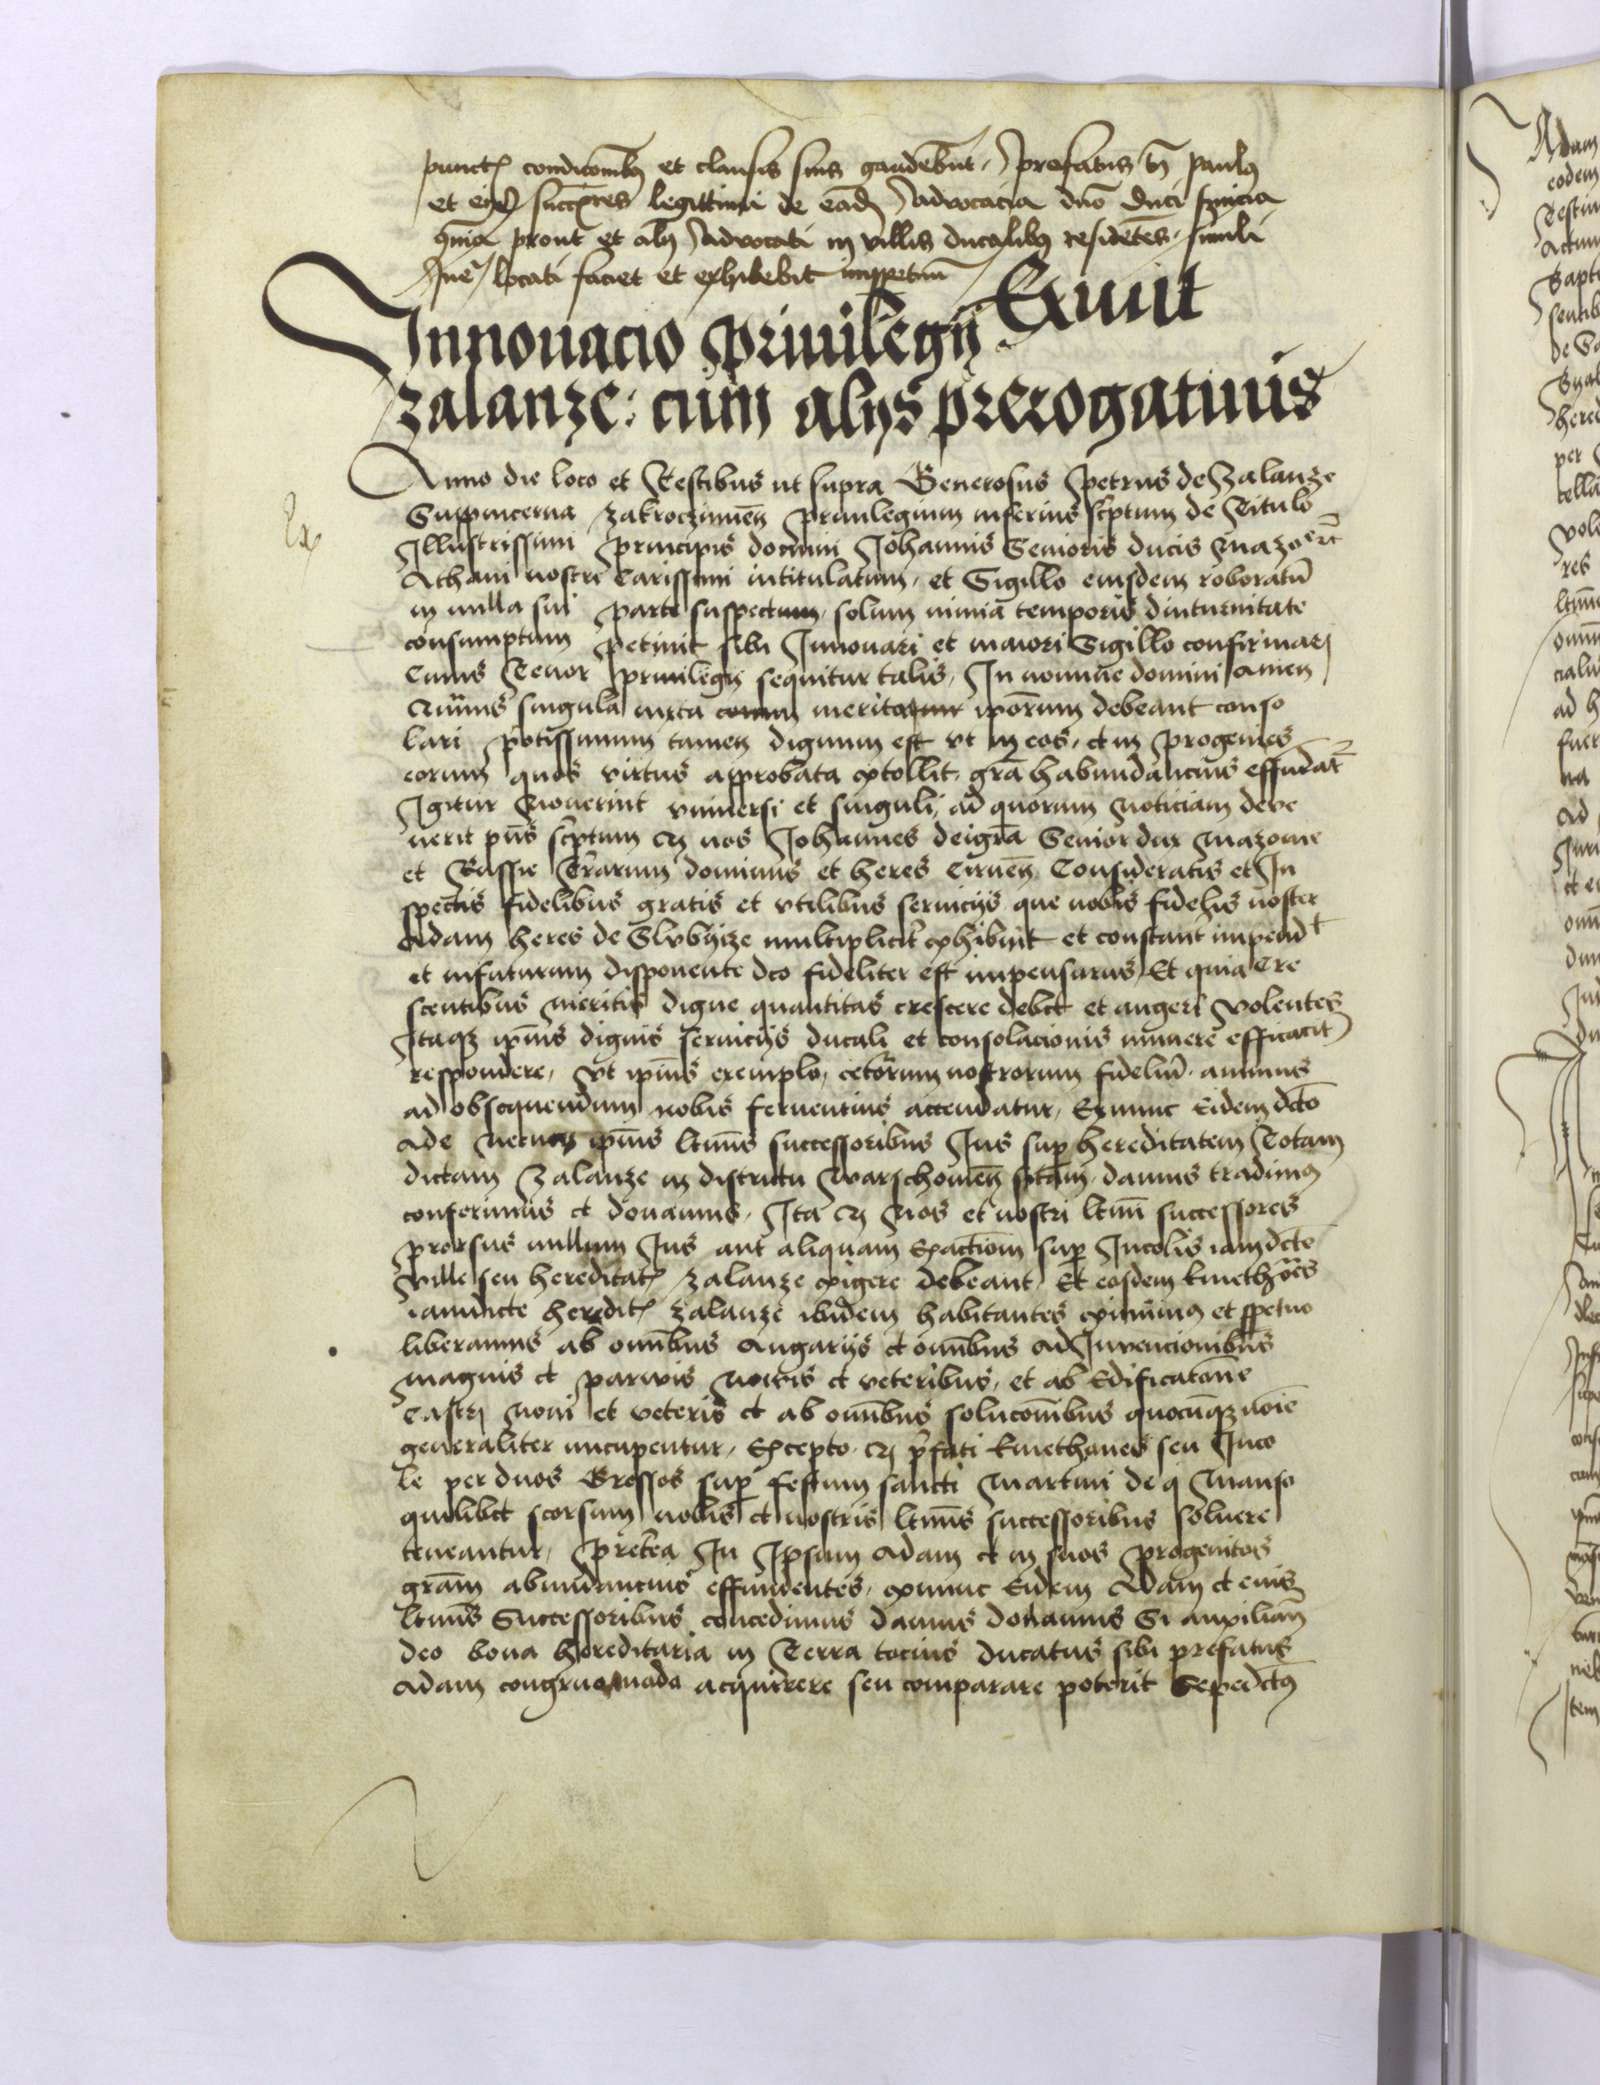 punct condicionibus et clausis suis gaudebunt, prefatus vero Paulus
et eius successores legittimi de eadem Advocacia duo Duci servicia
prout et alii Advocati in villis ducalibus residentes, simili
iure locati faciet et exhibebit imperpetuum
Exiuit
Innouacio priuilegij
zalanze: cum alijs prerogatiuis
Ex
Anno die loco et Testibus ut supra Generosus Petrus de Zalanze
Suppincerna zakroczimien Priuilegium inferius scriptum de Titulo
Illustrissimi Principis domini Johannis Senioris ducis Mazouie
Athaui nostri Carissimi intitulatum, et Sigillo eiusdem roboratum
in nulla sui parte suspectum, solum nimia temporis diuturnitate
consumptum petiuit sibi Innouari et maiori Sigillo confirmari
Cuius Tenor priuilegij sequitur talis, In nomine domini Amen
Quamuis singula iuxta merita ipsorum debeant conso
lari potissimum tamen dignum est vt in eos, et in progenies
eorum quos virtus approbata extollit, gratia habundancius effundatur
Igitur Nouerint vniuersi et singuli, ad quorum Noticiam deue
nerit presens scriptum quod nos Johannes dei gratia Senior dux Mazouie
et Russie Terrarum dominus et heres Cirnen Consideratis et In
spectis fidelibus gratis et vtilibus seruicijs que nobis fidelis noster
Adam heres de Slubycze multipliciter exhibuit et constant impendit
et infuturum disponente deo fideliter est impensurus, Et quia Cre
scentibus meritis digne quantitas crescere debet et augeri Volentes
Itaque ipsius dignis seruicijs ducali et consolacionis munere efficaciter
respondere, Vt ipsius exemplo, ceterorum nostrorum fidelium animus
ad obsequendum nobis feruentius accendatur, Exnunc Eidem dicto
Ade necnon ipsius legittimis successoribus Jus super hereditatem Totam
dictam Zalanze in districtu Warschouien sitam, damus tradimus
conferimus et donamus, Ita quod Nos et nostri legittimi successores
prorsus nullum Jus aut aliquam Exactionem super Incolis iamdicte
Ville seu hereditatis zalanze exigere debeant, Et eosdem kmethones
iamdicte hereditatis zalanze ibidem habitantes eximimus et perpetuo
liberamus ab omnibus Angarijs et omnibus AdInuencionibus
magnis et paruis Nouis et veteribus, et ab Edificatione
Castri Noui et veteris et ab omnibus solucionibus quocumque nomine
generaliter nuncupentur, Excepto quod prefati kmethones seu Inco
le per duos Grossos super festum sancti Martini de quolibet Manso
quilibet seorsum nobis et nostris legittimis successoribus Soluere
teneantur, Preterea In Ipsum Adam et in suos Progenitos
gratiam abundancius effundentes, exnunc Eidem Adam et eius
legittimis Successoribus concedimus damus donamus Si auxiliante
deo bona hereditaria in Terra tocius ducatus sibi prefatus
Adam congruo modo acquirere seu comparare poterit Sepedictus